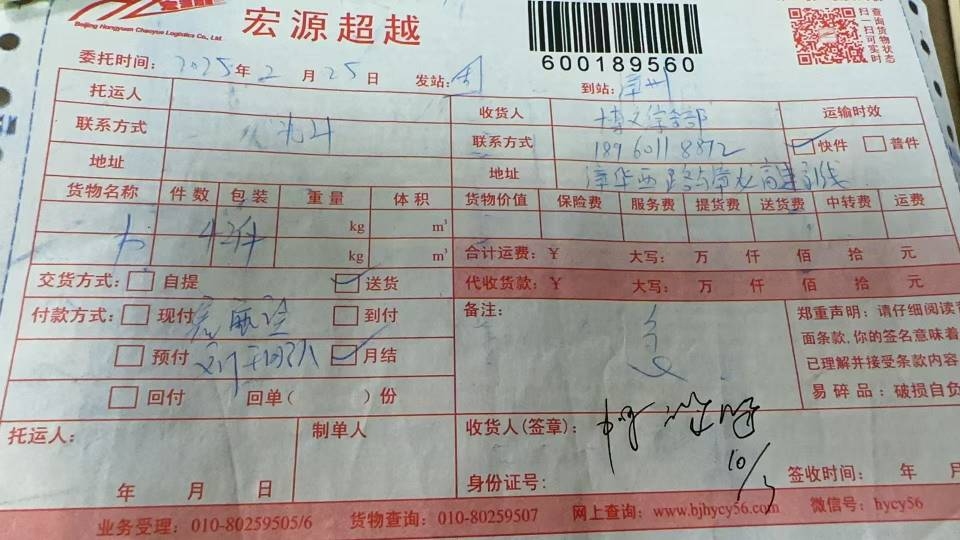 宏源超越
Beijing Hongyuan Chaoyue Logistics Co., Ltd.
600189560
扫一扫可实时
查询货物状态
委托时间: 2025年2月25日 发站: 到站: 漳州
托运人 收货人 博文俱乐部 运输时效
联系方式 联系方式 18960118872 快件 普件
地址 地址
货物名称 件数 包装 重量 体积 货物价值 保险费 服务费 提货费 送货费 中转费 运费
42件 kg m³
kg m³ 合计运费: ¥ 大写: 万 仟 佰 拾 元
交货方式: 自提 送货 代收货款: ¥ 大写: 万 仟 佰 拾 元
付款方式: 现付 到付 备注:
预付 月结
回付 回单( )份
郑重声明: 请仔细阅读
面条款,你的签名意味着
已理解并接受条款内容
易碎品: 破损自负
托运人: 制单人 收货人(签章):
10/3
年 月 日 身份证号: 签收时间: 年 月
业务受理: 010-80259505/6 货物查询: 010-80259507 网上查询: www.bjhycy56.com 微信号: hycy56